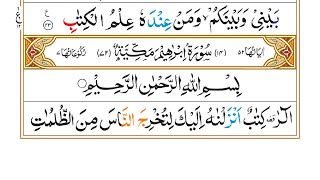 بَيْنِيْ وَبَيْنَكُمْ ۙ وَمَنْ عِنْدَهٗ عِلْمُ الْكِتٰبِ ﴿۴۳﴾
اٰيَاتُهَا ۵۲ (۱۴) سُوْرَةُ اِبْرٰهِيْمَ مَكِّيَّةٌ (۷۲) رُكُوْعَاتُهَا ۷
بِسْمِ اللّٰهِ الرَّحْمٰنِ الرَّحِيْمِ
الٓرٰ ۚ كِتٰبٌ اَنْزَلْنٰهُ اِلَيْكَ لِتُخْرِجَ النَّاسَ مِنَ الظُّلُمٰتِ